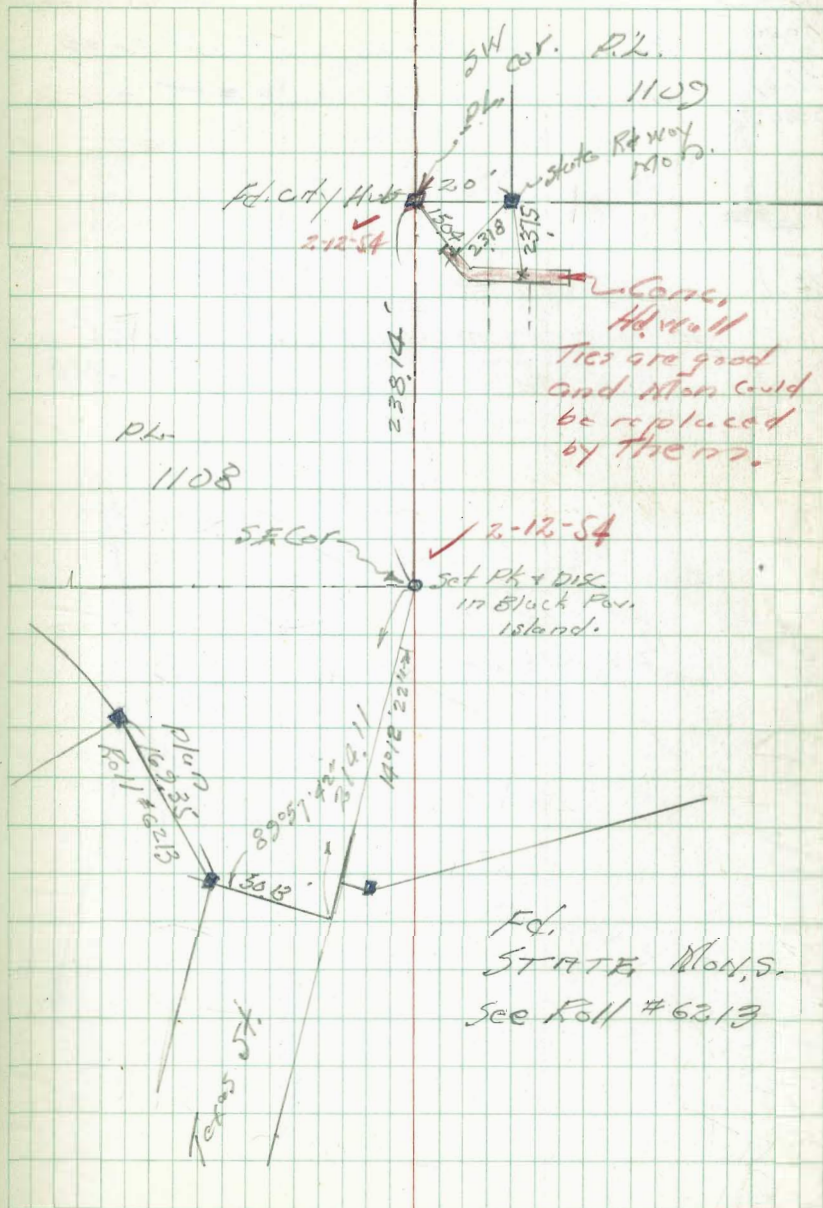 SW cor. P.L.
1109
P.L.
State Rt way
Mon.
Fd. City Hub
20'
2-12-54
15.04
23.18
23.75
Conc.
Hd. wall
Ties are good
and Mon Could
be replaced
by Them.
238.14'
P.L.
1108
S.E. Cor.
2-12-54
Set PK & Disc
in Black Pav.
Island.
14°18'22"
314.11
89°57'42"
Plan
169.35
Roll #6213
50.13
Fd.
STATE MON,S.
See Roll #6213
Texas St.